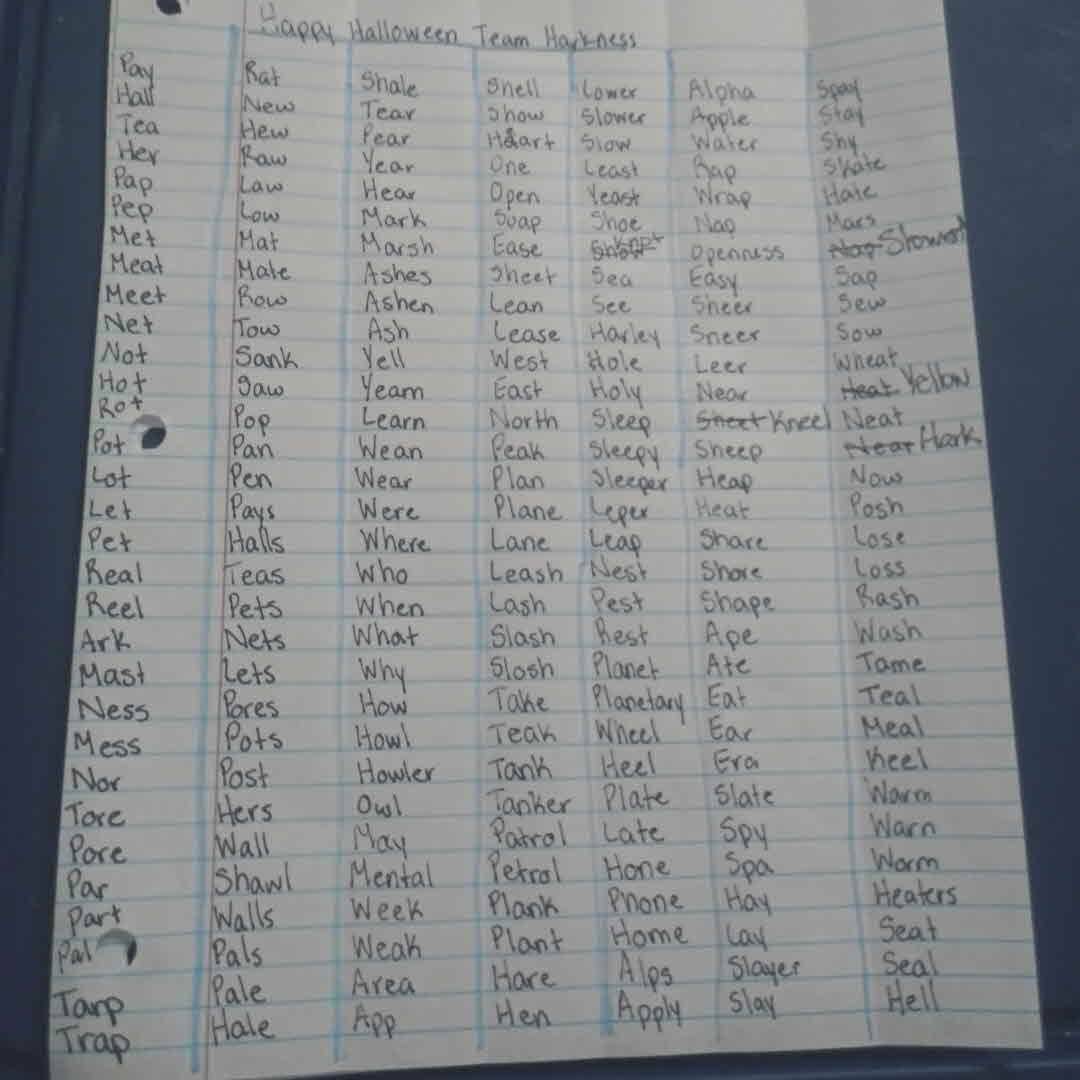 Happy Halloween Team Harkness
Pay
Hall
Tea
Her
Pap
Pep
Met
Meat
Meet
Net
Not
Hot
Rot
Pot
Lot
Let
Pet
Real
Reel
Ark
Mast
Ness
Mess
Nor
Tore
Pore
Par
Part
Pal
Tarp
Trap
Rat
New
Hew
Raw
Law
Low
Mat
Mate
Row
Tow
Sank
Saw
Pop
Pan
Pen
Pays
Halls
Teas
Pets
Nets
Lets
Pores
Pots
Post
Hers
Wall
Shawl
Walls
Pals
Pale
Hale
Shale
Tear
Pear
Year
Hear
Mark
Marsh
Ashes
Ashen
Ash
Yell
Yearn
Learn
Wean
Wear
Were
Where
Who
When
What
Why
How
Howl
Howler
Owl
May
Mental
Week
Weak
Area
App
Shell
Show
Heart
One
Open
Soap
Ease
Sheet
Lean
Lease
West
East
North
Peak
Plan
Plane
Lane
Leash
Lash
Slash
Slosh
Take
Teak
Tank
Tanker
Patrol
Petrol
Plank
Plant
Hare
Hen
Lower
Slower
Slow
Least
Yeast
Shoe
Sea
See
Harley
Hole
Holy
Sleep
Sleepy
Sleeper
Leper
Leap
Nest
Pest
Rest
Planet
Planetary
Wheel
Heel
Plate
Late
Hone
Phone
Home
Alps
Apply
Alpha
Apple
Water
Rap
Wrap
Nap
Openness
Easy
Sheer
Sneer
Leer
Near
Sheet Kneel
Sheep
Heap
Heat
Share
Shore
Shape
Ape
Ate
Eat
Ear
Era
Slate
Spy
Spa
Hay
Lay
Slayer
Slay
Spay
Stay
Shy
Skate
Hate
Mars
Nap Slowest
Sap
Sew
Sow
Wheat
Heat Yellow
Neat
Near Hark
Now
Posh
Lose
Loss
Rash
Wash
Tame
Teal
Meal
Keel
Warm
Warn
Worm
Heaters
Seat
Seal
Hell